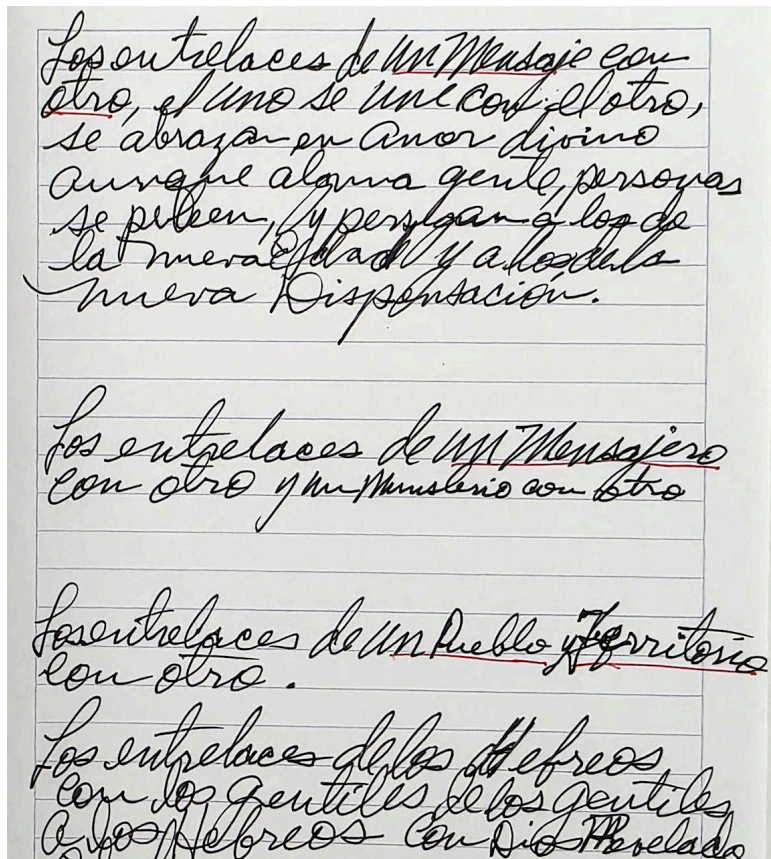 Los entrelaces de un Mensaje con
otro, el uno se une con el otro,
se abrazan en amor divino
aunque alguna gente, personas
se peleen, y persigan a los de
la nueva Edad y a los de la
nueva Dispensación.
Los entrelaces de un Mensajero
con otro y un Ministerio con otro
Los entrelaces de un Pueblo y Territorio
con otro.
Los entrelaces de los Hebreos
con los gentiles de los gentiles
a los Hebreos con Dios